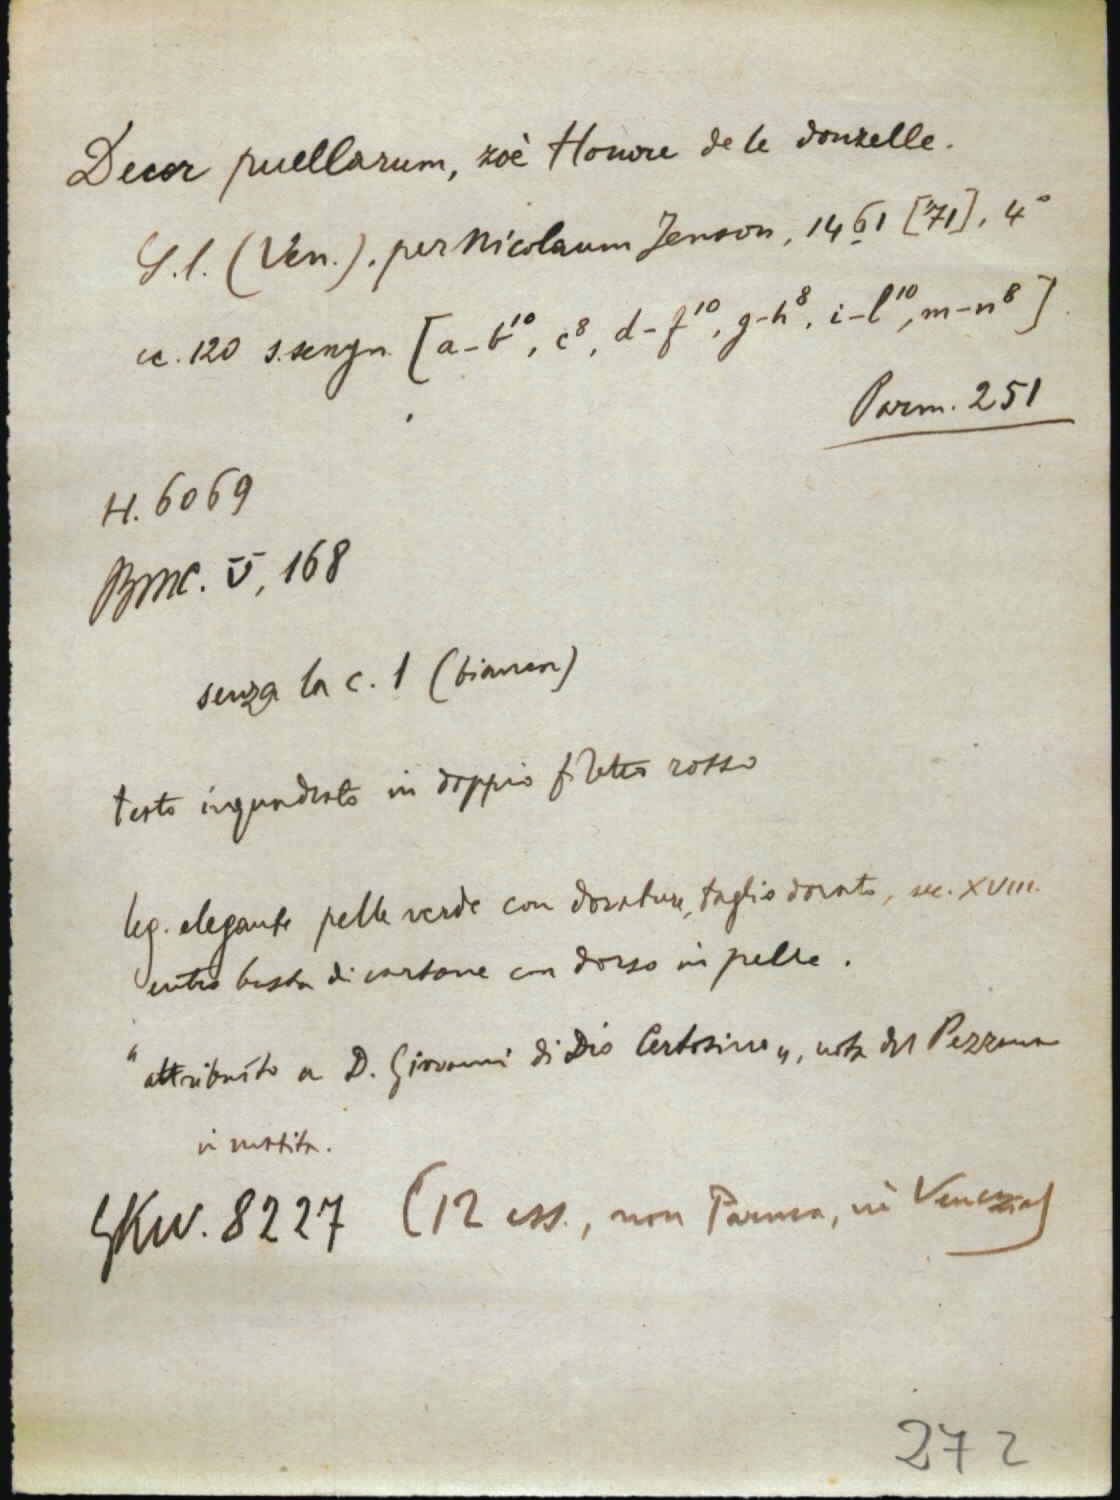 Decor puellarum, zoè Honore de le donzelle.
S.l. (Ven.), per Nicolaum Jenson, 1461 ['71]. 4°
cc. 120 s. segn. [a-b¹⁰, c⁸, d-f¹⁰, g-h⁸, i-l¹⁰, m-n⁸]
Parm. 251
H. 6069
BMC. V, 168
senza la c. 1 (bianca)
testo inquadrato in doppio filetto rosso
leg. elegante pelle verde con dorature, taglio dorato, sec. XVIII.
entro busta di cartone con dorso in pelle.
"attribuito a D. Giovanni di Dio Certosino", nota del Pezzana
in matita.
GKW. 8227 (12 ess., non Parma, nè Venezia)
272